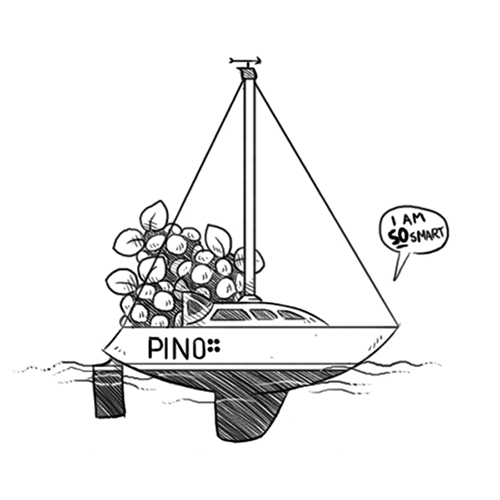 I AM
SO SMART
PINO